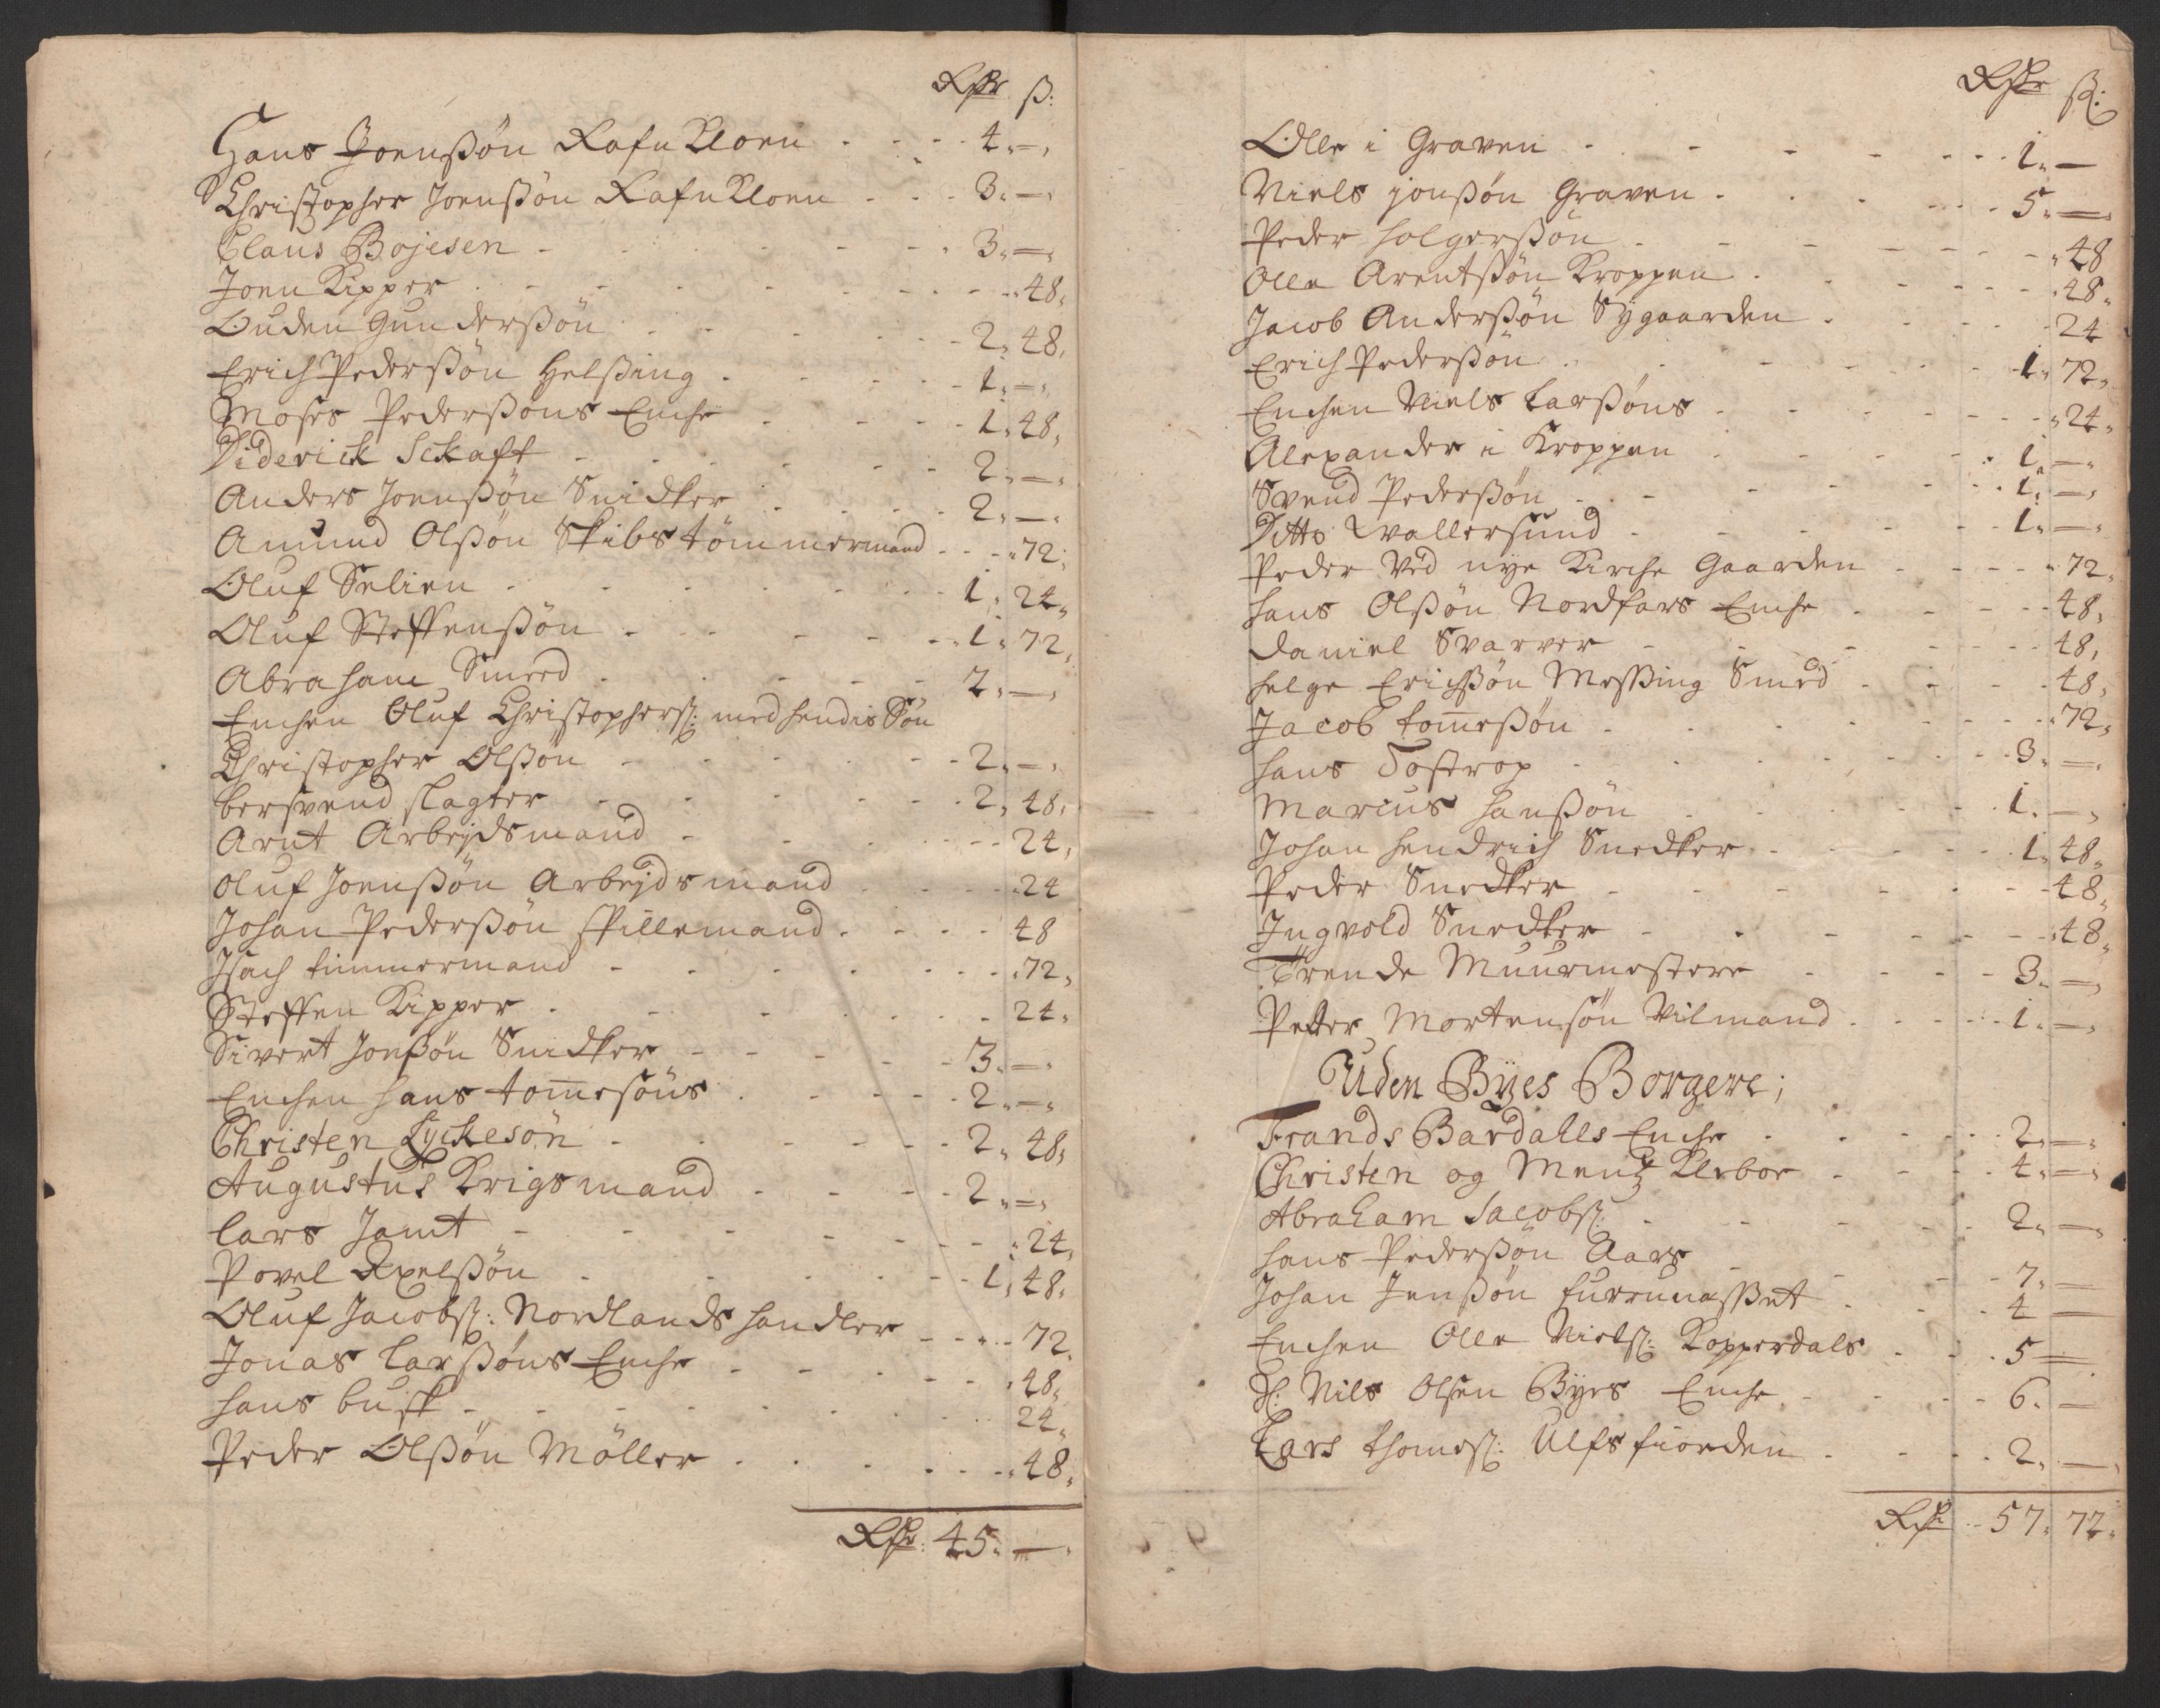 Rdr ß:
Hans Joenßön Rafn Kloen - - - 4 " — "
Christopher Joenßön Rafn Kloen - - - 3 " — "
Claus Bojesen - - - 3 " — "
Joen Kipper - - - " 48 "
Ouden Gunderßön - - - 2 " 48 "
Erich Pederßön Helßing - - - 1 " — "
Moses Pederßöns Enche - - - 1 " 48 "
Diderick Sckaft - - - 2 " — "
Anders Joenßön Snidker - - - 2 " — "
Amund Olßön Skibstömmermand - - - " 72 "
Oluf Selien - - - 1 " 24 "
Oluf Steffenßön - - - 1 " 72 "
Abraham Smed - - - 2 " — "
Enchen Oluf Christophers: med hendis Sön
Christopher Olßön - - - 2 " — "
bersvend slagter - - - 2 " 48 "
Arnt Arbejdsmand - - - 24 "
Oluf Joenßön Arbejdsmand - - - " 24
Johan Pederßön spillemand - - - 48
Isach timmermand - - - " 72 "
Steffen Kipper - - - 24 "
Sivert Jonßön Snidker - - - 3 " — "
Enchen Hans tomesöns - - - 2 " — "
Christen Lyckesön - - - 2 " 48 "
Augustus Krigsmand - - - 2 " — "
lars Jamt - - - " 24 "
Povel Axelßön - - - 1 " 48 "
Oluf Jacobs: Nordlands handler - - - 72 "
Jonas larßöns Enche - - - " 48 "
Hans busk - - - 24 "
Peder Olßön Möller - - - " 48 "
Rdr: 45 " — "
Rdr ß:
Olle i Graven - - - 1 " —
Niels jonßön Graven - - - 5 " — "
Peder Holgerßön - - - " 48
Olle Arentßön Kroppen - - - " 48 "
Jacob Anderßön Sygaarden - - - 24
Erich Pederßön - - - 1 " 72 "
Enchen Niels Larßöns - - - " 24 "
Alexander i Kroppen - - - 1 " — "
Svend Pederßön - - - 1 " — "
Ditto Wallersund - - - 1 " — "
Peder Ved nye Kirche Gaarden - - - " 72 "
Hans Olßön Nordfars Enche - - - 48 "
Daniel Svarver - - - 48 "
Helge Erichßön Meßing Smed - - - 48 "
Jacob tomeßön - - - " 72 "
Hans Tostrop - - - 3 " — "
Marcus Hanßön - - - 1 " — "
Johan Hendrich Snedker - - - 1 " 48 "
Peder Snedker - - - 48 "
Ingvold Snedker - - - " 48 "
Trende Muurmestere - - - 3 " — "
Peder Mortensön Vilmand - - - 1 " — "
Uden Byes Borgere;
Frands Bardahls Enche - - - 2 " — "
Christen og Mentz Klerbor - - - 4 " — "
Abraham Jacobs: - - - 2 " — "
Hans Pederßön Aars - - - 7 " —
Johan Jenßön furrunæßet - - - 4 —
Enchen Olle Niels: Kopperdals - - - 5 —
Sl: Nils Olsen Byes Enche - - - 6 " —
Lars thomes: Ulfsfiorden - - - 2 " — "
Rdr - 57 " 72 "